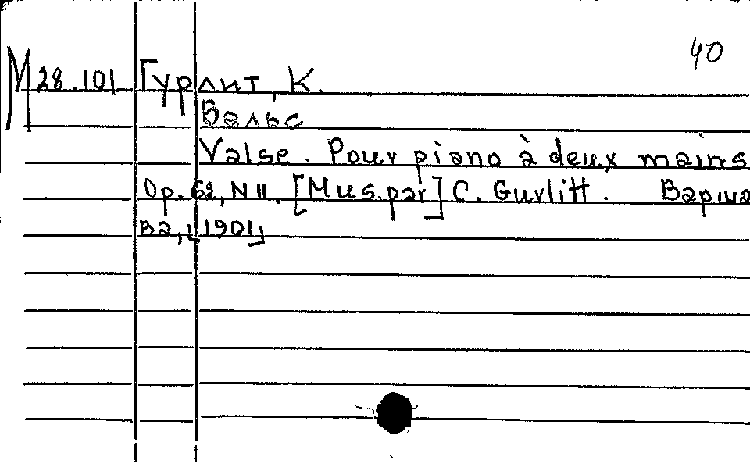 40
М 28.101 Гурлит, К.
Вальс
Valse. Pour piano à deux mains
Op. 62, N 11. [Mus. par] C. Gurlitt. Варша
ва, [1901]